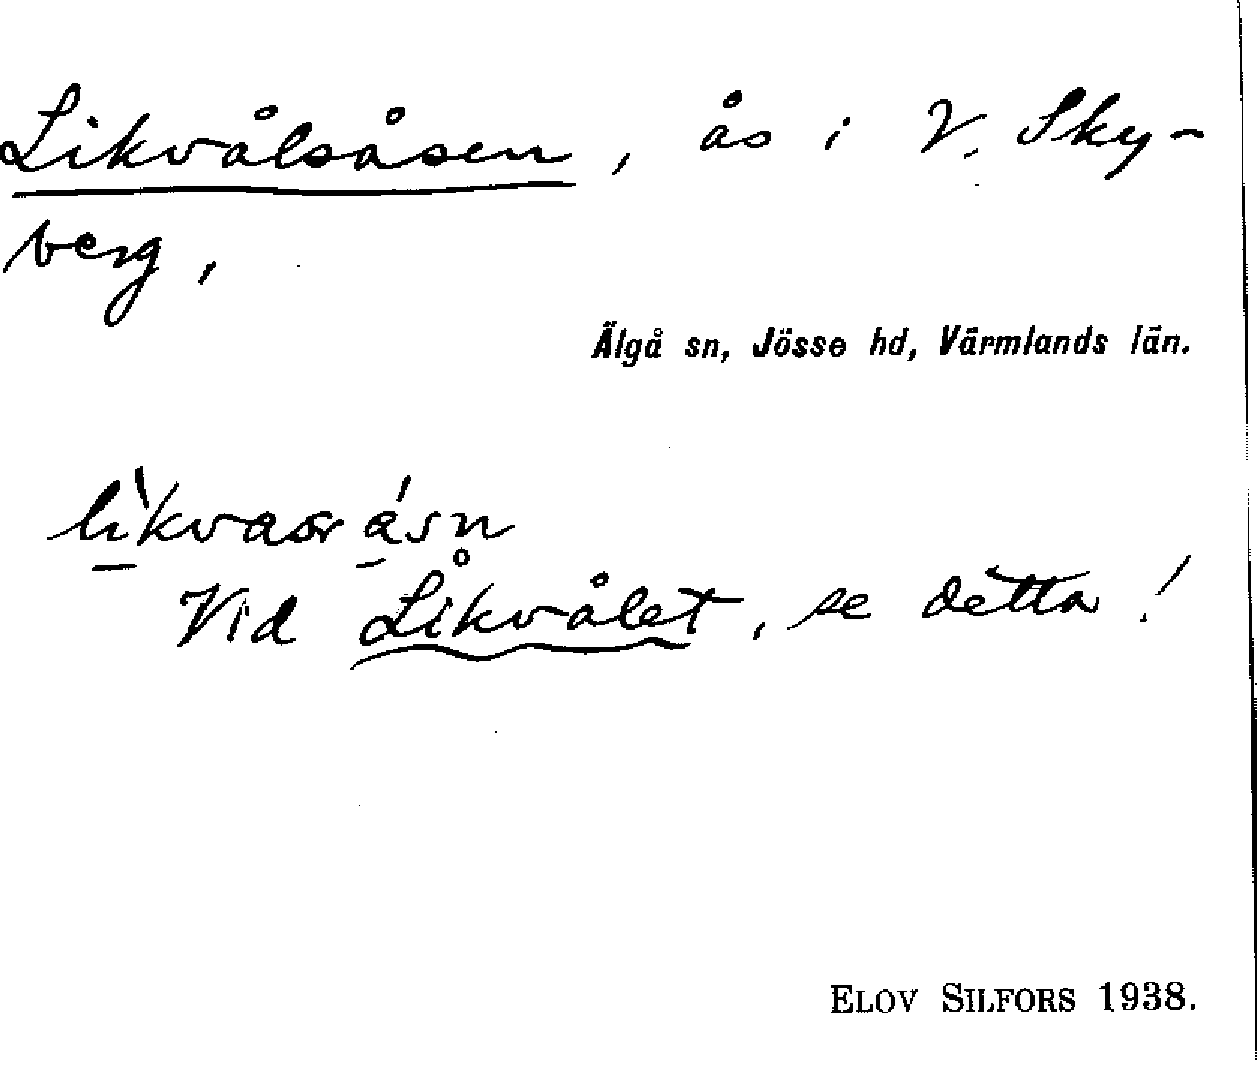 Likvålsåsen, ås i V. Sky-
berg,
Älgå sn, Jösse hd, Värmlands län.
Vid Likvålet, se detta!
ELOV SILFORS 1938.